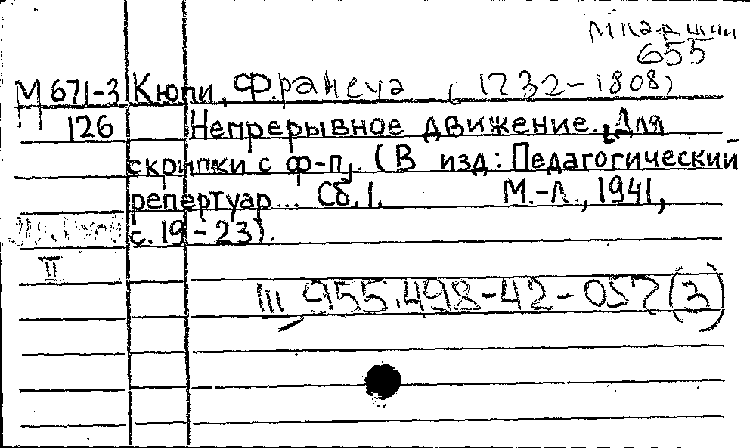 655
М 671-3 Кюпи, Франсуа (1732-1808)
126 Непрерывное движение. [Для
скрипки с ф-п]. (В изд: Педагогический
репертуар... Сб. 1. М.-Л., 1941,
с. 19-23).
II
III 955.498-42-057 (3)